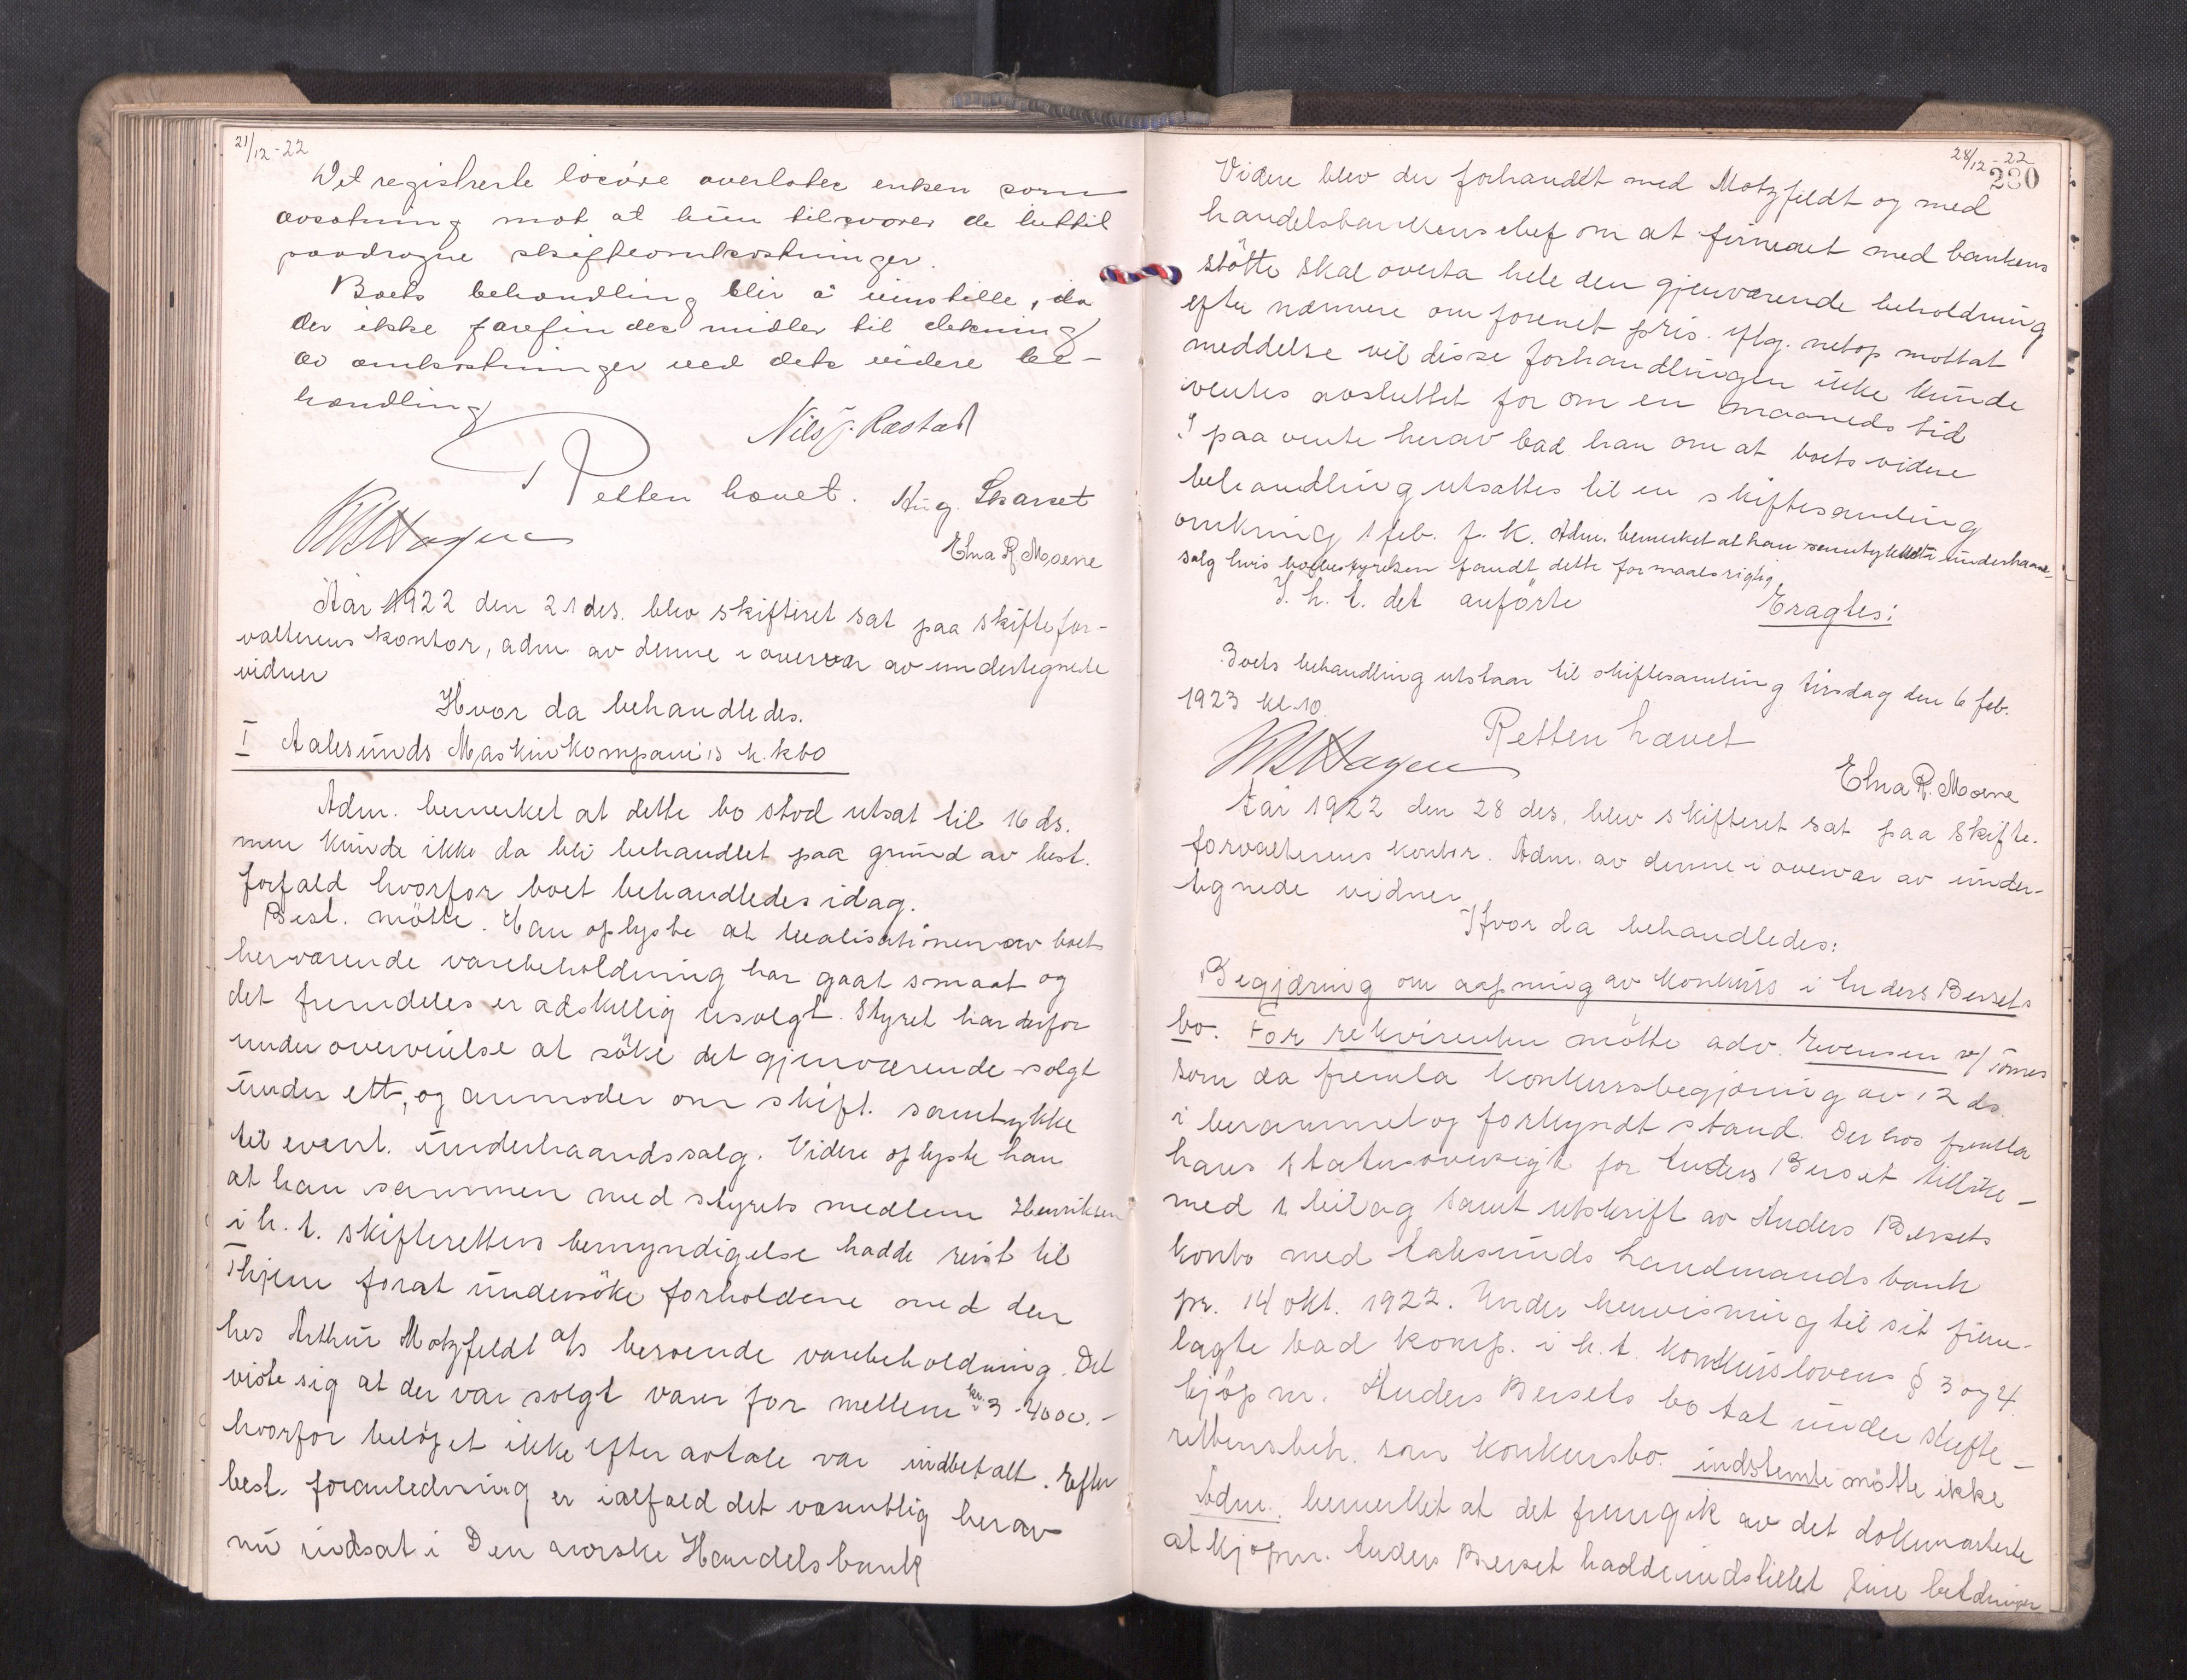 21/12-22
Det registrerte løsøre overlates enken som
avsetning mot at hun tilsvarer de hittil
paadragne skifteomkostninger.
Boets behandling blir å innstille, da
der ikke forefindes midler til dekning
av omkostninger ved dets videre be-
handling
Nils J. Rastad
Retten hævet. Aug. Skarset
Elna R Moene
Aar 1922 den 21 des. blev skifteret sat paa skiftefor-
valterens kontor, adm. av denne i overvær av undertegnede
vidner
Hvor da behandledes.
I Aalesunds Maskinkompani's k.kbo
Adm. bemerket at dette bo stod utsat til 16 ds.
men kunde ikke da bli behandlet paa grund av best.
forfald hvorfor boet behandledes idag.
Best. mötte. Han oplyste at realisationen av boets
herværende varebeholdning har gaat smaat og
det fremdeles er adskillig usolgt. Styret har derfor
under overveielse at söke det gjenværende solgt
under ett, og anmoder om skift. samtykke
til event. underhaandssalg. Videre oplyste han
at han sammen med styrets medlem Henriksen
i h. t. skifterettens bemyndigelse hadde reist til
Thjem forat undersöke forholdene med den
hos Arthur Motzfeldt a/s beroende varebeholdning. Det
viste sig at der var solgt varer for mellem kr. 3-4000.-
hvorfor belöpet ikke efter avtale var indbetalt. Efter
best. foranledning er ialfald det væsentlig herav
nu indsat i Den norske Handelsbank
28/12-22
280
Videre blev der forhandlet med Motzfeldt og med
handelsbankens chef om at firmaet med bankens
stötte skal overta hele den gjenværende beholdning
efter nærmere om forenet pris. Iflg. netop mottat
meddelse vil disse forhandlingen ikke kunde
ventes avsluttet for om en maaneds tid
I paa vente herav bad han om at boets videre
behandling utsattes til en skiftesamling
omkring 1 feb. f. k. Adm. bemerket at han samtykket i underhaands-
salg hvis bobestyrelsen fandt dette formaalsrigtig.
I. h. t. det anförte
Eragtes:
Boets behandling utstaar til skiftesamling tirsdag den 6 feb.
1923 kl. 10.
Retten hævet
Elna R. Moene
Aar 1922 den 28 des. blev skifteret sat paa skifte-
forvalterens kontor. Adm. av denne i overvær av under-
tegnede vidner
Hvor da behandledes:
Begjæring om aapning av konkurs i Anders Bersets
bo. For rekvirenten mötte adv. Evensen v/ Tömes
som da fremla konkursbegjæring av 12 ds.
i berammet og forkyndt stand. Der hos fremla
hans statusoversigt for Anders Berset tillike-
med 1 beilag samt utskrift av Anders Bersets
konto med Aalesunds Landmandsbank
pr. 14 okt. 1922. Under henvisning til sit frem-
lagte bad komp. i h. t. konkurslovens § 3 og 4
kjöpm. Anders Bersets bo tat under skifte-
rettensbeh. som konkursbo. indstemte mötte ikke
Adm. bemerket at det fremgik av det dokumenterte
at kjöpm. Anders Berset hadde indstillet sine betalninger